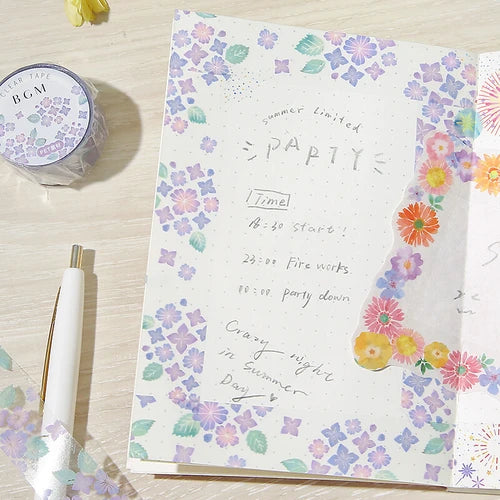 CLEAR TAPE
BGM
summer limited
PARTY
Time
18:30 start!
23:00 Fire works
00:00 party down
Crazy night
in Summer
Day